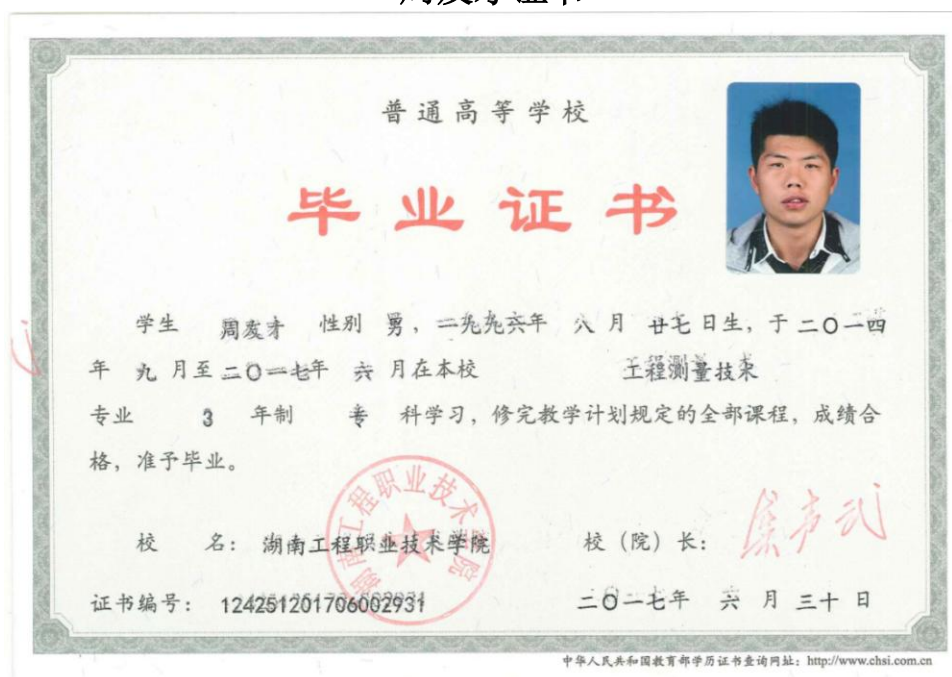 普通高等学校
毕业证书
学生 周友才 性别 男，一九九六年 八 月 廿七 日生，于 二〇一四
年 九 月至 二〇一七年 六 月在本校 工程测量技术
专业 3 年制 专 科学习，修完教学计划规定的全部课程，成绩合
格，准予毕业。
湖南工程职业技术学院
校 名： 湖南工程职业技术学院 校（院）长：
证书编号： 124251201706002931 二〇一七年 六 月 三十 日
中华人民共和国教育部学历证书查询网址：http://www.chsi.com.cn